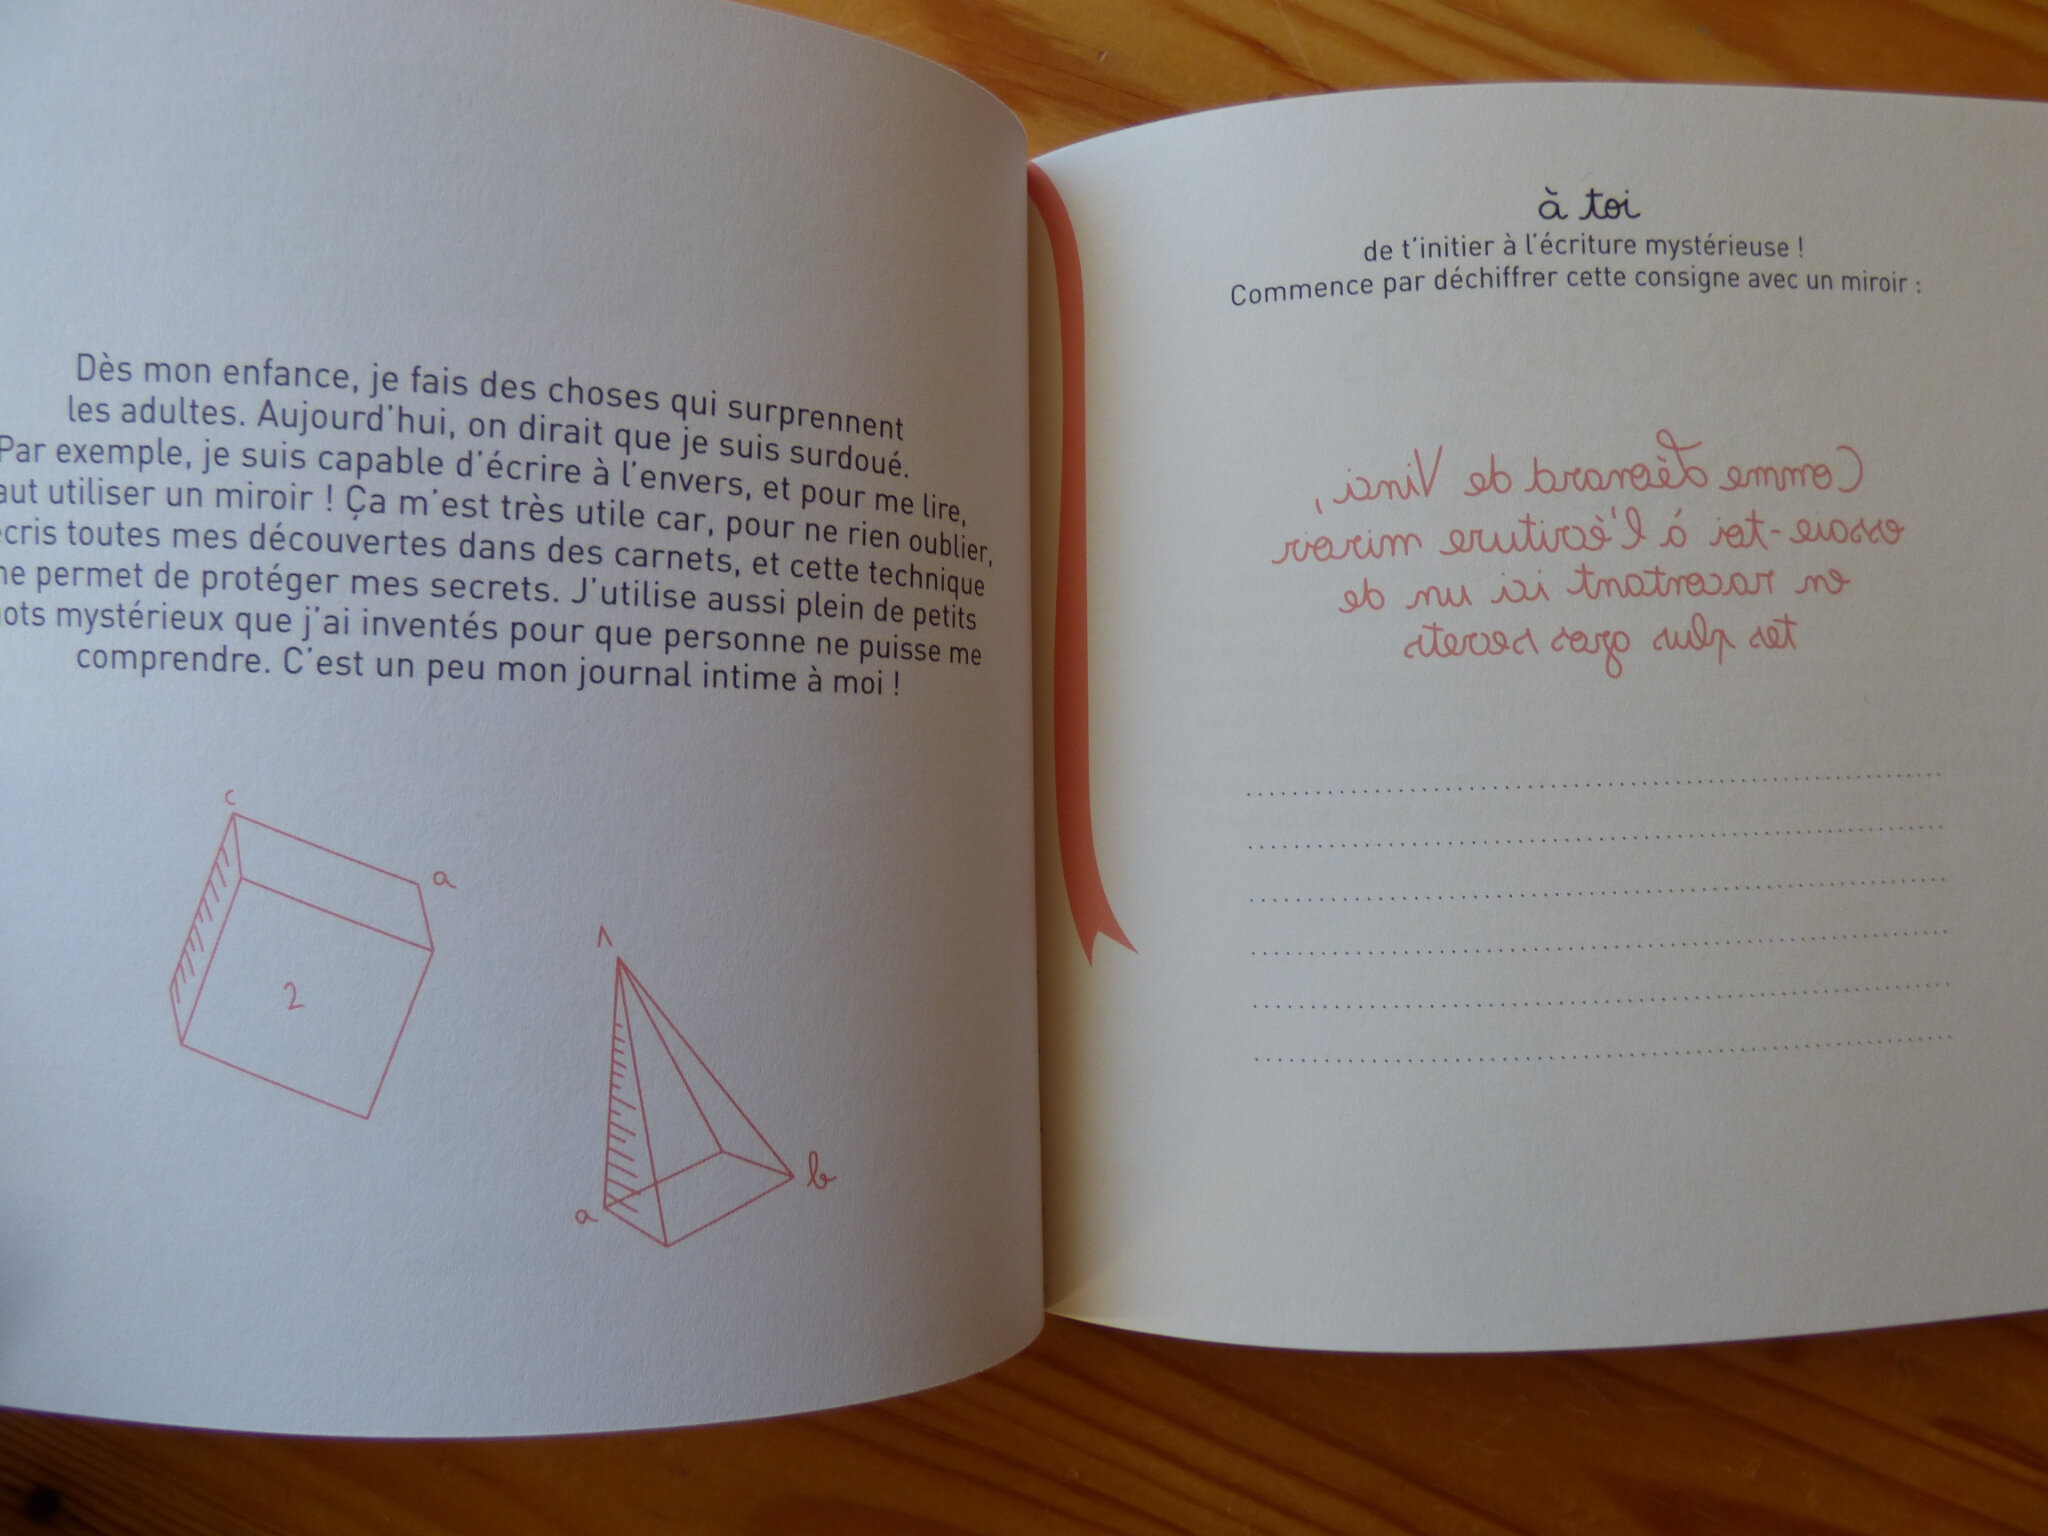 Dès mon enfance, je fais des choses qui surprennent
les adultes. Aujourd'hui, on dirait que je suis surdoué.
Par exemple, je suis capable d'écrire à l'envers, et pour me lire,
aut utiliser un miroir ! Ça m'est très utile car, pour ne rien oublier,
cris toutes mes découvertes dans des carnets, et cette technique
ne permet de protéger mes secrets. J'utilise aussi plein de petits
ots mystérieux que j'ai inventés pour que personne ne puisse me
comprendre. C'est un peu mon journal intime à moi !
c
a
2
1
a
b
à toi
de t'initier à l'écriture mystérieuse !
Commence par déchiffrer cette consigne avec un miroir :
Comme Léonard de Vinci,
essaie-toi à l'écriture miroir
en racontant ici un de
tes plus gros secrets